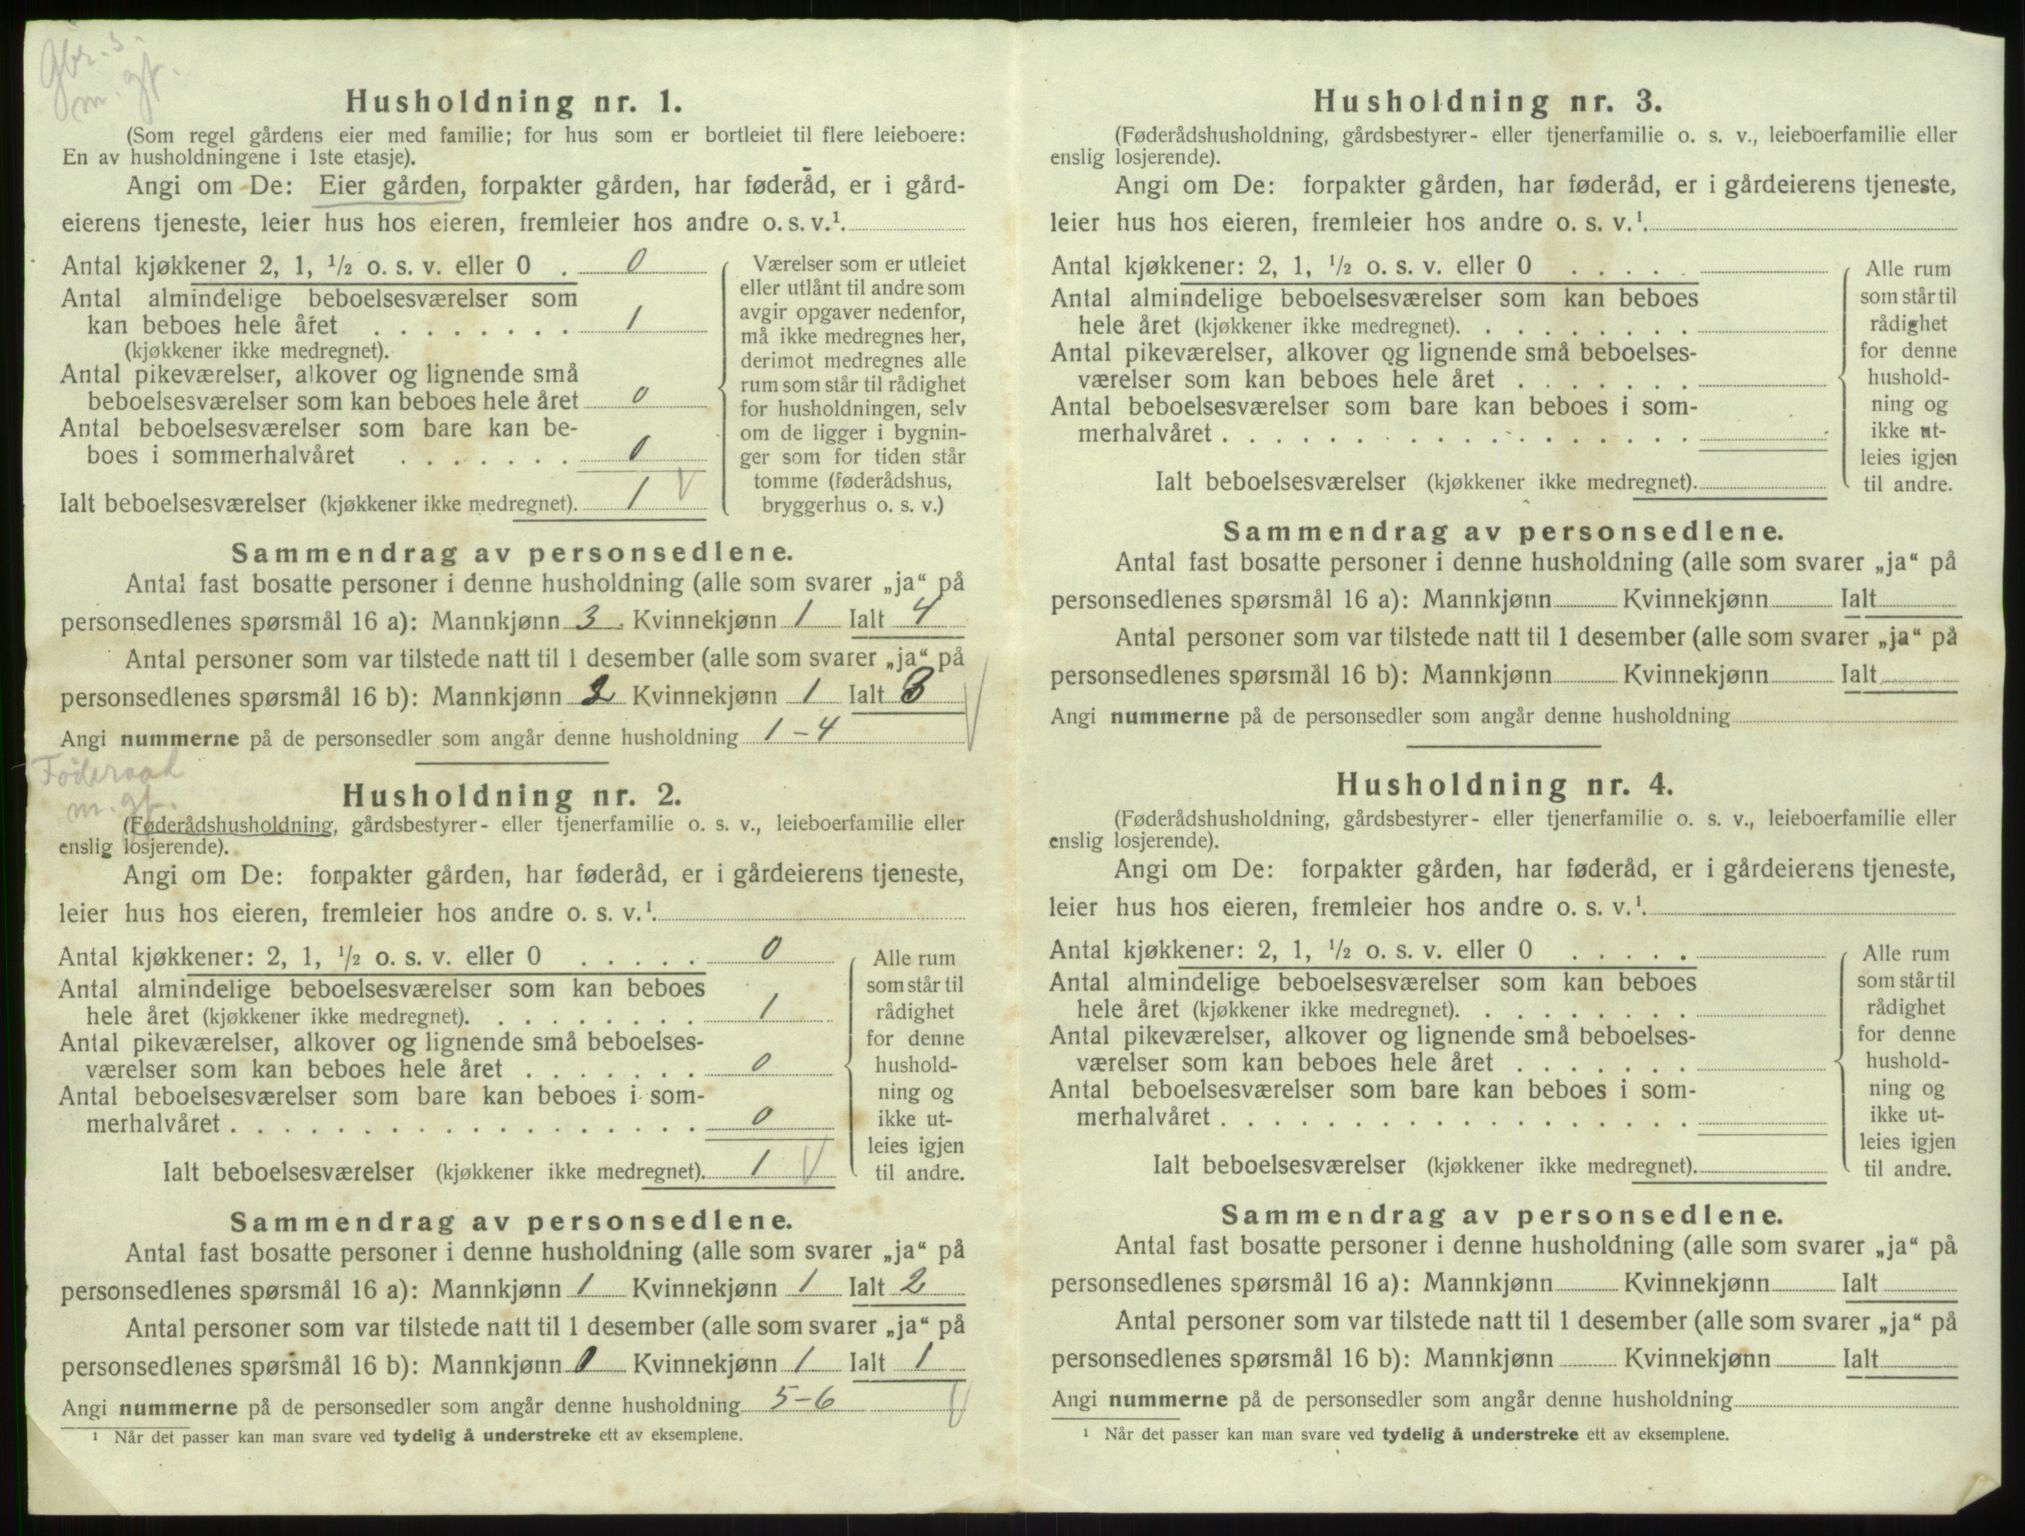 Gbr. s.
m. gf.
Husholdning nr. 1.
(Som regel gårdens eier med familie; for hus som er bortleiet til flere leieboere:
En av husholdningene i 1ste etasje).
Angi om De: Eier gården, forpakter gården, har føderåd, er i gård-
eierens tjeneste, leier hus hos eieren, fremleier hos andre o. s. v.¹.
Antal kjøkkener 2, 1, ½ o. s. v. eller 0 . 0
Antal almindelige beboelsesværelser som
kan beboes hele året . . . . . . . . 1
(kjøkkener ikke medregnet).
Antal pikeværelser, alkover og lignende små
beboelsesværelser som kan beboes hele året 0
Antal beboelsesværelser som bare kan be-
boes i sommerhalvåret . . . . . . . 0
Ialt beboelsesværelser (kjøkkener ikke medregnet). 1 V
Værelser som er utleiet
eller utlånt til andre som
avgir opgaver nedenfor,
må ikke medregnes her,
derimot medregnes alle
rum som står til rådighet
for husholdningen, selv
om de ligger i bygnin-
ger som for tiden står
tomme (føderådshus,
bryggerhus o. s. v.)
Sammendrag av personsedlene.
Antal fast bosatte personer i denne husholdning (alle som svarer „ja“ på
personsedlenes spørsmål 16 a): Mannkjønn 3 Kvinnekjønn 1 Ialt 4
Antal personer som var tilstede natt til 1 desember (alle som svarer „ja“ på
personsedlenes spørsmål 16 b): Mannkjønn 2 Kvinnekjønn 1 Ialt 3 V
Angi nummerne på de personsedler som angår denne husholdning 1-4
Føderaad
m. gf.
Husholdning nr. 2.
(Føderådshusholdning, gårdsbestyrer- eller tjenerfamilie o. s. v., leieboerfamilie eller
enslig losjerende).
Angi om De: forpakter gården, har føderåd, er i gårdeierens tjeneste,
leier hus hos eieren, fremleier hos andre o. s. v.¹.
Antal kjøkkener: 2, 1, ½ o. s. v. eller 0 . . . . . 0
Antal almindelige beboelsesværelser som kan beboes
hele året (kjøkkener ikke medregnet). . . . . . . . . 1
Antal pikeværelser, alkover og lignende små beboelses-
værelser som kan beboes hele året . . . . . . . 0
Antal beboelsesværelser som bare kan beboes i som-
merhalvåret . . . . . . . . . . . . . . . . . . 0
Ialt beboelsesværelser (kjøkkener ikke medregnet). 1 V
Alle rum
som står til
rådighet
for denne
hushold-
ning og
ikke ut-
leies igjen
til andre.
Sammendrag av personsedlene.
Antal fast bosatte personer i denne husholdning (alle som svarer „ja“ på
personsedlenes spørsmål 16 a): Mannkjønn 1 Kvinnekjønn 1 Ialt 2
Antal personer som var tilstede natt til 1 desember (alle som svarer „ja“ på
personsedlenes spørsmål 16 b): Mannkjønn 0 Kvinnekjønn 1 Ialt 1
Angi nummerne på de personsedler som angår denne husholdning 5-6 V
¹ Når det passer kan man svare ved tydelig å understreke ett av eksemplene.
Husholdning nr. 3.
(Føderådshusholdning, gårdsbestyrer- eller tjenerfamilie o. s. v., leieboerfamilie eller
enslig losjerende).
Angi om De: forpakter gården, har føderåd, er i gårdeierens tjeneste,
leier hus hos eieren, fremleier hos andre o. s. v.¹.
Antal kjøkkener: 2, 1, ½ o. s. v. eller 0 . . . . .
Antal almindelige beboelsesværelser som kan beboes
hele året (kjøkkener ikke medregnet). . . . . . . . .
Antal pikeværelser, alkover og lignende små beboelses-
værelser som kan beboes hele året . . . . . . .
Antal beboelsesværelser som bare kan beboes i som-
merhalvåret . . . . . . . . . . . . . . . . . .
Ialt beboelsesværelser (kjøkkener ikke medregnet).
Alle rum
som står til
rådighet
for denne
hushold-
ning og
ikke ut-
leies igjen
til andre.
Sammendrag av personsedlene.
Antal fast bosatte personer i denne husholdning (alle som svarer „ja“ på
personsedlenes spørsmål 16 a): Mannkjønn Kvinnekjønn Ialt
Antal personer som var tilstede natt til 1 desember (alle som svarer „ja“ på
personsedlenes spørsmål 16 b): Mannkjønn Kvinnekjønn Ialt
Angi nummerne på de personsedler som angår denne husholdning
Husholdning nr. 4.
(Føderådshusholdning, gårdsbestyrer- eller tjenerfamilie o. s. v., leieboerfamilie eller
enslig losjerende).
Angi om De: forpakter gården, har føderåd, er i gårdeierens tjeneste,
leier hus hos eieren, fremleier hos andre o. s. v.¹.
Antal kjøkkener: 2, 1, ½ o. s. v. eller 0 . . . . .
Antal almindelige beboelsesværelser som kan beboes
hele året (kjøkkener ikke medregnet). . . . . . . . .
Antal pikeværelser, alkover og lignende små beboelses-
værelser som kan beboes hele året . . . . . . .
Antal beboelsesværelser som bare kan beboes i som-
merhalvåret . . . . . . . . . . . . . . . . . .
Ialt beboelsesværelser (kjøkkener ikke medregnet).
Alle rum
som står til
rådighet
for denne
hushold-
ning og
ikke ut-
leies igjen
til andre.
Sammendrag av personsedlene.
Antal fast bosatte personer i denne husholdning (alle som svarer „ja“ på
personsedlenes spørsmål 16 a): Mannkjønn Kvinnekjønn Ialt
Antal personer som var tilstede natt til 1 desember (alle som svarer „ja“ på
personsedlenes spørsmål 16 b): Mannkjønn Kvinnekjønn Ialt
Angi nummerne på de personsedler som angår denne husholdning
¹ Når det passer kan man svare ved tydelig å understreke ett av eksemplene.